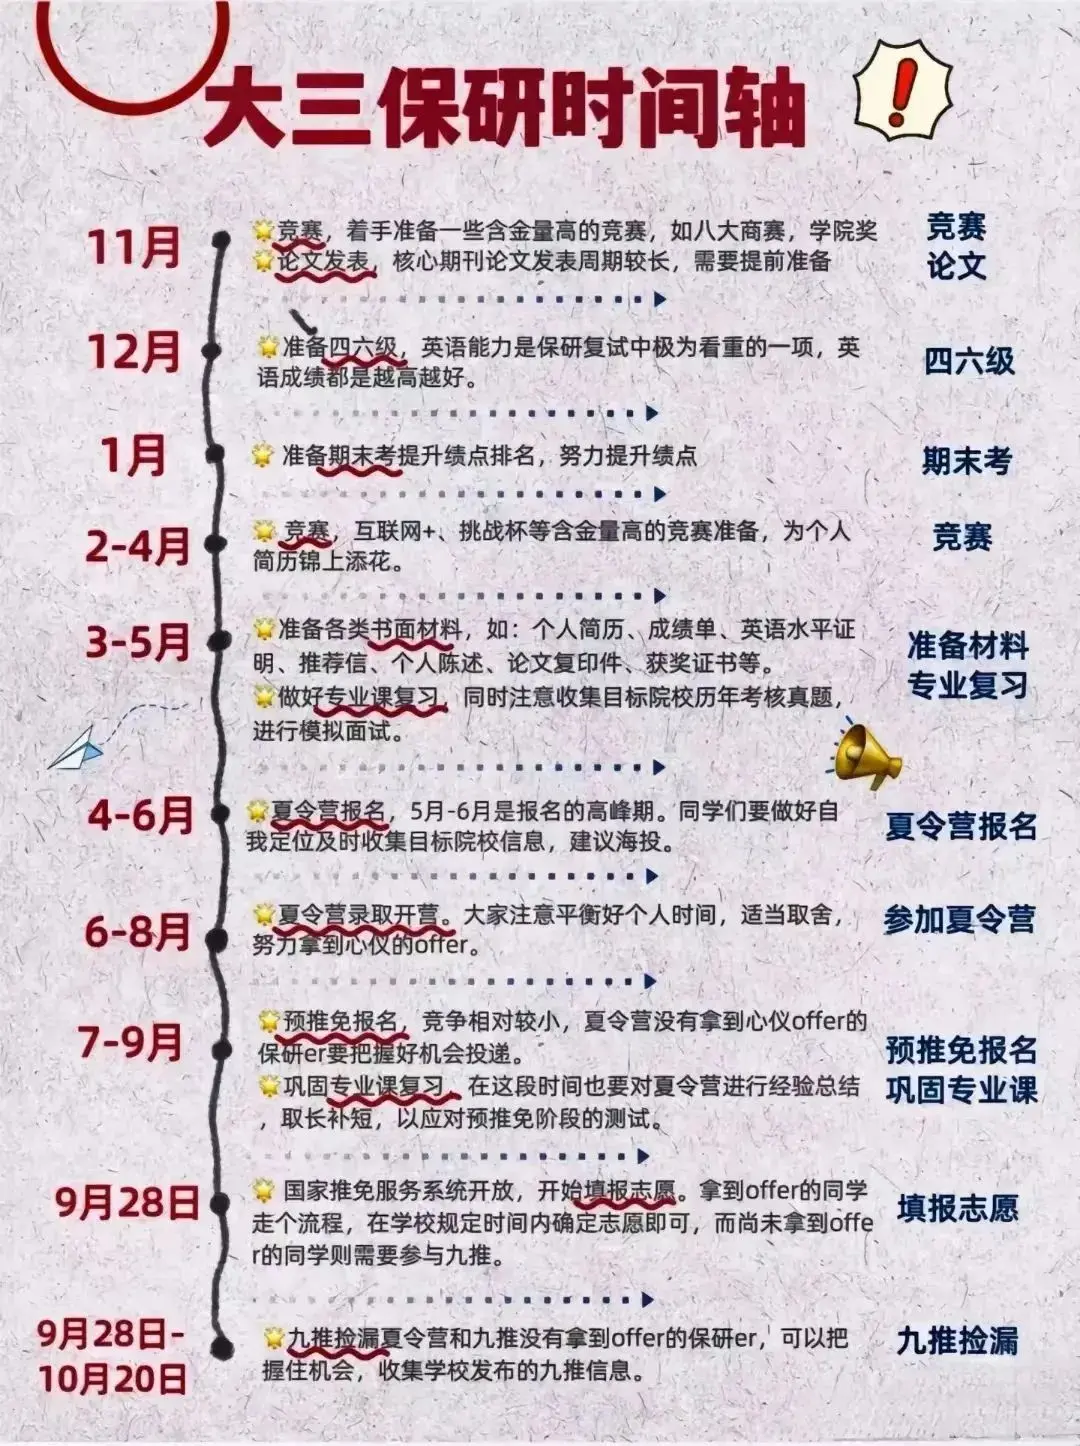 大三保研时间轴
11月
🌟竞赛，着手准备一些含金量高的竞赛，如八大商赛，学院奖
🌟论文发表，核心期刊论文发表周期较长，需要提前准备
竞赛
论文
12月
🌟准备四六级，英语能力是保研复试中极为看重的一项，英
语成绩都是越高越好。
四六级
1月
🌟 准备期末考提升绩点排名，努力提升绩点
期末考
2-4月
🌟 竞赛，互联网+、挑战杯等含金量高的竞赛准备，为个人
简历锦上添花。
竞赛
3-5月
🌟准备各类书面材料，如：个人简历、成绩单、英语水平证
明、推荐信、个人陈述、论文复印件、获奖证书等。
🌟做好专业课复习，同时注意收集目标院校历年考核真题，
进行模拟面试。
准备材料
专业复习
4-6月
🌟夏令营报名，5月-6月是报名的高峰期。同学们要做好自
我定位及时收集目标院校信息，建议海投。
夏令营报名
6-8月
🌟夏令营录取开营。大家注意平衡好个人时间，适当取舍，
努力拿到心仪的offer。
参加夏令营
7-9月
🌟预推免报名，竞争相对较小，夏令营没有拿到心仪offer的
保研er要把握好机会投递。
🌟巩固专业课复习，在这段时间也要对夏令营进行经验总结
，取长补短，以应对预推免阶段的测试。
预推免报名
巩固专业课
9月28日
🌟 国家推免服务系统开放，开始填报志愿。拿到offer的同学
走个流程，在学校规定时间内确定志愿即可，而尚未拿到offe
r的同学则需要参与九推。
填报志愿
9月28日-
10月20日
🌟九推捡漏夏令营和九推没有拿到offer的保研er，可以把
握住机会，收集学校发布的九推信息。
九推捡漏